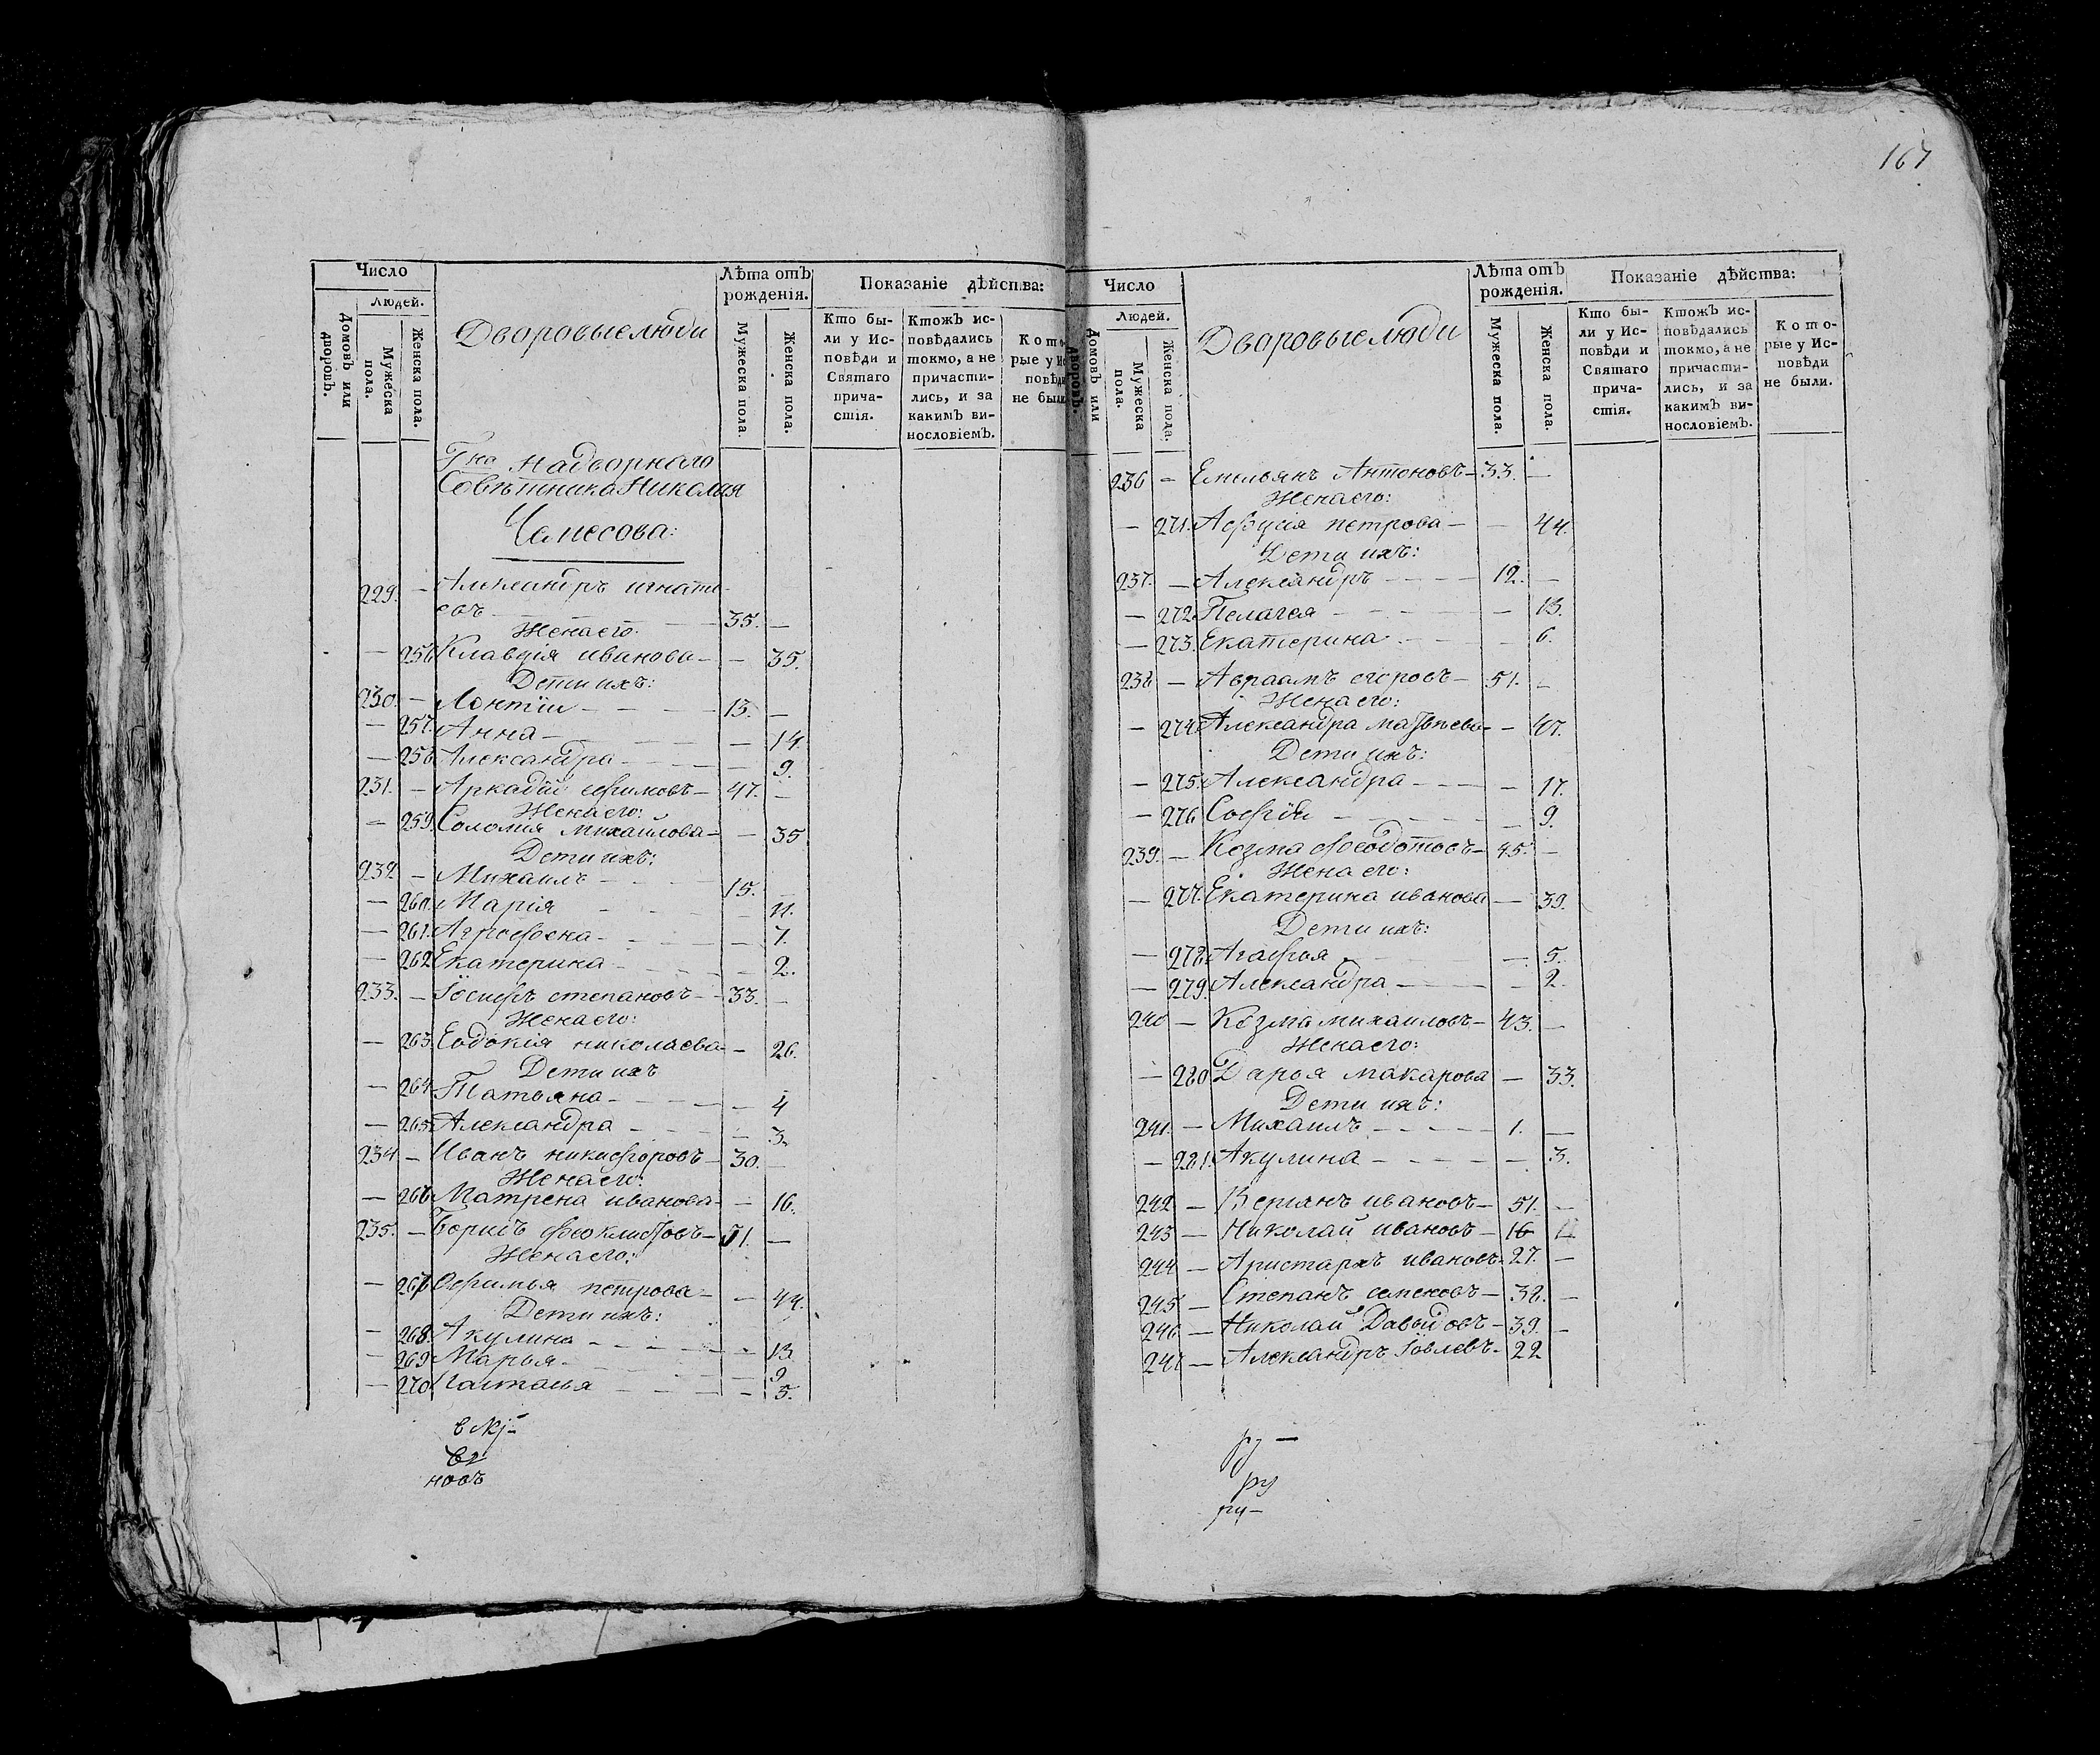 167
Число
Людей.
Домовъ или дворовъ.
Мужеска пола.
Женска пола.
Дворовые люди
Лѣта отъ рожденія.
Мужеска пола.
Женска пола.
Показаніе дѣйства:
Кто были у Исповѣди и Святаго причастія.
Ктожъ исповѣдались токмо, а не причастились, и за какимъ винословіемъ.
Которые у Исповѣди не были
Гна Надворнаго
Совѣтника Николая
Чемесова:
229. — Александръ игнатi-
евъ — 35. —
Жена его:
— 256 Клавдія иванова — — 35.
Дети ихъ:
230. — Леонтiи — 13. —
— 257. Анна — — 14.
— 258 Александра — — 9.
231. — Аркадiй ефимовъ — 47. —
Жена его:
— 259. Соломия Михаилова — — 35
Дети ихъ:
232. — Михаилъ — 15. —
— 260. Марiя — — 11.
— 261. Агрофена — — 7.
— 262 Екатерина — — 2.
233. — Iосифъ степановъ — 33. —
Жена его:
— 263. Евдокiя николаева — — 26.
Дети ихъ
— 264 Татьяна — — 4
— 265. Александра — — 3.
234 — Иванъ никифоровъ — 30. —
Жена его:
— 266 Матрена иванова — — 16.
235. — Борисъ феоклистовъ — 51. —
Жена его:
— 267 Офимья петрова — — 44.
Дети ихъ:
— 268. Акулина — — 13
— 269 Марья — — 9
— 270 Настасья — — 5.
новъ
Число
Людей.
Домовъ или дворовъ.
Мужеска пола.
Женска пола.
Дворовые люди
Лѣта отъ рожденія.
Мужеска пола.
Женска пола.
Показаніе дѣйства:
Кто были у Исповѣди и Святаго причастія.
Ктожъ исповѣдались токмо, а не причастились, и за какимъ винословіемъ.
Которые у Исповѣди не были.
236 — Емельянъ Антоновъ — 33. —
Жена его:
— 271. петрова — — 44.
Дети ихъ:
237. — Александръ — 12. —
— 272 Пелагея — — 13.
— 273. Екатерина — — 6.
238 — Авраамъ егоровъ — 51. —
Жена его:
— 274 Александра матвѣева — — 47.
Дети ихъ:
— 275. Александра — — 17.
— 276 Софiя — — 9.
239. — Козма феодотовъ — 45. —
Жена его:
— 277. Екатерина иванова — — 39.
Дети ихъ:
— 278. Агафья — — 5.
— 279. Александра — — 2.
240 — Козма михаиловъ — 43. —
Жена его:
— 280 Дарья макарова — — 33.
Дети ихъ:
241. — Михаилъ — 1. —
— 281. Акулина — — 3.
242 — ивановъ — 51. —
243 — Николай ивановъ — 16
244 — Аристархъ ивановъ — 27. —
245 — Степанъ семеновъ — 38. —
246 — Николай Давыдовъ — 39. —
247 — Александръ Iовлевъ — 22
ру
ру —